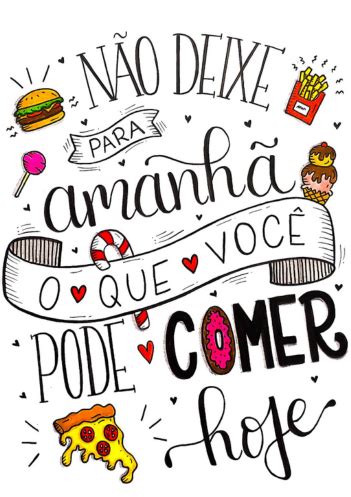 NÃO DEIXE
PARA
amanhã
O QUE VOCÊ
PODE COMER
hoje